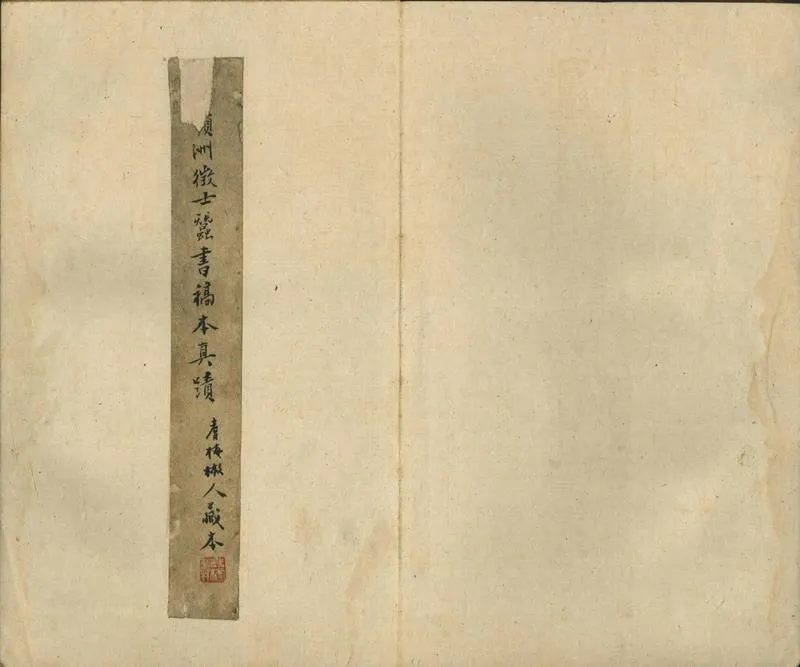 洲徵士蠶書稿本真蹟
青梅人藏本